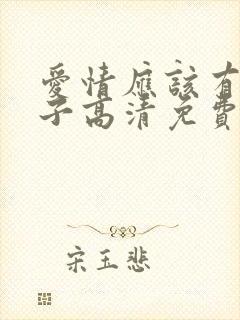 愛情應該有
子高清免費
宋玉悲